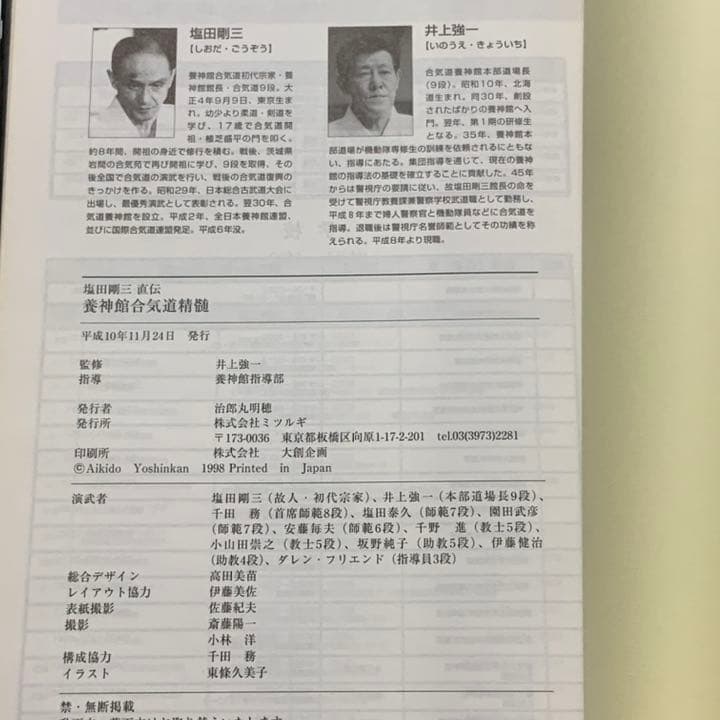 塩田剛三
【しおだ・ごうぞう】
養神館合気道初代宗家・養
神館館長・合気道9段。大
正4年9月9日、東京生ま
れ。幼少より柔道・剣道を
学び、17歳で合気道開
祖・植芝盛平の門を叩く。
約8年間、開祖の身近で修行を積む。戦後、茨城県
岩間の合気苑で再び開祖に学び、9段を取得、その
後全国で合気道の演武を行い、戦後の合気道復興の
きっかけを作る。昭和29年、日本総合古武道大会に
出場し、最優秀演武として表彰される。翌30年、合
気道養神館を設立。平成2年、全日本養神館連盟、
並びに国際合気道連盟発足。平成6年没。
井上強一
【いのうえ・きょういち】
合気道養神館本部道場長
(9段)。昭和10年、北海
道生まれ。同30年、創設
されたばかりの養神館へ入
門。翌年、第1期の研修生
となる。35年、養神館本
部道場が機動隊専修生の訓練を依頼されるにともな
い、指導にあたる。集団指導を通じて、現在の養神
館の指導法の基礎を確立することに貢献した。45年
からは警視庁の要請に従い、故塩田剛三館長の命を
受けて警視庁教養課兼警察学校武道職として勤務し、
平成8年まで婦人警察官と機動隊員などに合気道を
指導。退職後は警視庁名誉師範としてその功績を称
えられる。平成8年より現職。
塩田剛三 直伝
養神館合気道精髄
平成10年11月24日 発行
監修 井上強一
指導 養神館指導部
発行者 治郎丸明穂
発行所 株式会社ミツルギ
〒173-0036 東京都板橋区向原1-17-2-201 tel.03(3973)2281
印刷所 株式会社 大創企画
©Aikido Yoshinkan 1998 Printed in Japan
演武者 塩田剛三(故人・初代宗家)、井上強一(本部道場長9段)、
千田 務(首席師範8段)、塩田泰久(師範7段)、園田武彦
(師範7段)、安藤毎夫(師範6段)、千野 進(教士5段)、
小山田崇之(教士5段)、坂野純子(助教5段)、伊藤健治
(助教4段)、ダレン・フリエンド(指導員3段)
総合デザイン 高田美苗
レイアウト協力 伊藤美佐
表紙撮影 佐藤紀夫
撮影 斎藤陽一
小林 洋
構成協力 千田 務
イラスト 東條久美子
禁・無断掲載